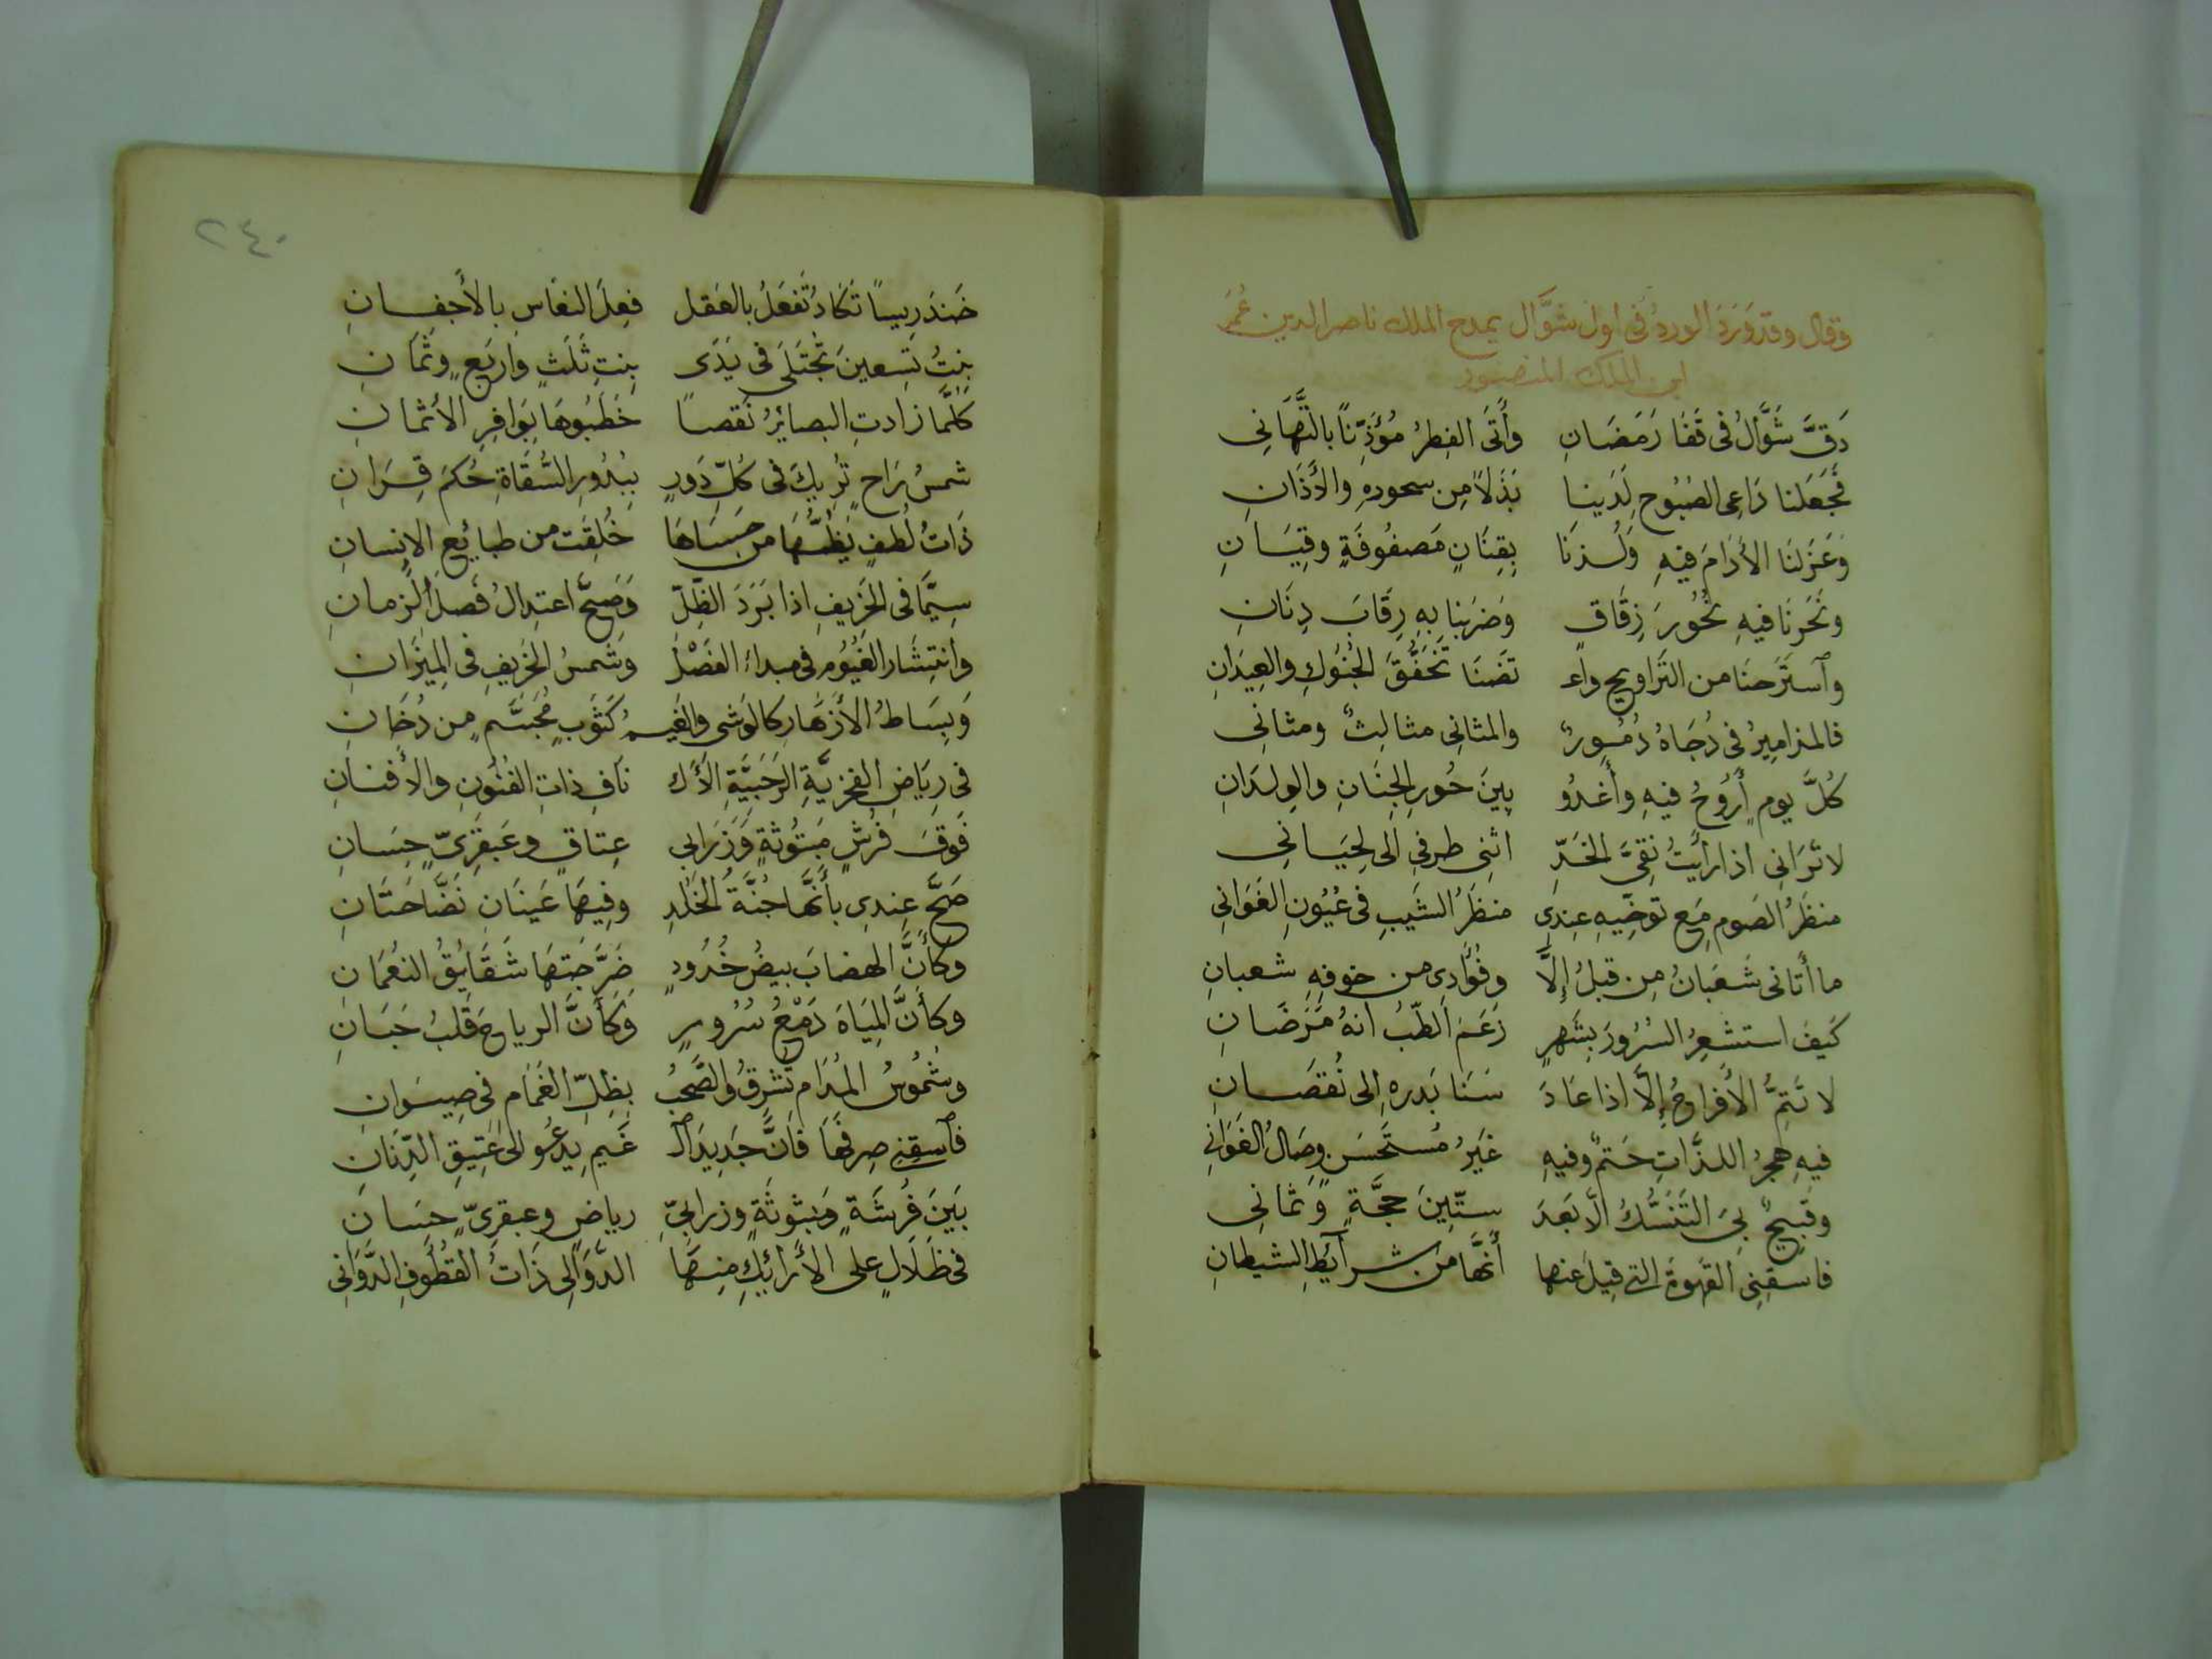 وقال وقد وَرَدَ الورد في اول شوَّال يمدح الملك ناصر الدين عُمَر
ابن الملك المنصور
دَقَّ شَوَّالُ في قَفَا رَمَضَانِ وأَتَى الفِطرُ مُؤَذِّنًا بالتَّهَانِى
فَجَعَلنا دَاعِى الصَبُوحِ لَدَينا بَدَلاً مِن سحورِهِ والأَذَانِ
وَعَزَلنَا الأدَامَ فيهِ وَلُذنَا بِقِنَانٍ مَصفُوفَةٍ وقِيَانِ
ونَحَرنَا فيهِ نُحُورَ زِقَاقٍ وَضرَبنا بِهِ رِقَابَ دِنَانِ
وٱستَرَحنَا من التَرَاوِيحِ واع تَضنَا بخَفقِ الجُنُوكِ والعِيدَانِ
فالمزامِيرُ في دُجَاهُ زُمُورٌ والمثانِى مثالِثٌ ومثانِى
كُلَّ يومٍ أَرُوحُ فيهِ وأغدُو بينَ حُورِ الجِنَانِ والوِلدَانِ
لا تَرَانِى اذا رأَيتُ نَقِىَّ الخَدِّ اثنِى طرفى الى لِحيَانِى
منظَرُ الصَومِ مَع توخِّيهِ عِندِى منظَرُ الشَيبِ فى عُيُونِ الغَوَانِى
ما أَتَانى شَعبَانُ مِن قبلُ إِلَّا وفُؤَادِى من خوفِهِ شعبانِ
كَيفَ استشعِرُ السُرُورَ بِشَهرٍ زَعَمَ الطِّبُ انهُ مَرَضَانِ
لا تَتِمُّ الأَفراحُ إلَّا اذا عَادَ سَنَا بَدرِهِ الى نُقصَانِ
فيهِ هجرُ اللذَّاتِ حَتمٌ وفيهِ غَيرُ مُستَحسَنٍ وِصَالُ الغَوَانِى
وقَبِيحٌ بِىَ التَنَسُّكُ الّا بَعدَ ستّينَ حجَّةٍ وَثمَانِى
فاسقِنِى القَهوَةَ التى قِيلَ عنها أَنَّهَا مَن شرايطِ الشيطانِ
٢٤٠
خَندَرِيسًا تَكَادُ تَفعَلُ بالعَقل فِعلَ النعَاسِ بالأَجفانِ
بِنتُ تِسعينَ تُجتَلَى فى يَدَى بِنتِ ثَلَثٍ واربَعٍ وثَمَانِ
كلَّمَا زادتِ البصايرُ نَقصًا خَطَبُوهَا بِوَافِرِ الأَثمانِ
شمسُ رَاحٍ تُرِيكَ فى كُلِّ دَورٍ بِبُدُورِ السُقَاةِ حُكمَ قِرَانِ
ذَاتُ لُطفٍ يَظُنُّهَا من حَسَاهَا خُلِقَت من طبايعِ الانِسانِ
سِيَّمَا فى الخَرِيفِ اذا بَرَدَ الظِلّ وَصَحَّ اعتِدالُ فَصلِ الزمانِ
وانتِشَار الغُيُومِ فى مبداءِ الفَصْلِ وشَمسُ الخَرِيفِ فى المِيزَانِ
وَبِسَاطُ الأَزهَارِ كالوَشى والغَيمُ كَثَوبٍ مُجَسَّمٍ من دُخَانِ
فى رِيَاضِ الفخرِيَّةِ الرَحَبِيَّةِ الأَك نَافِ ذاتِ الفُنُونِ والأَفنانِ
فَوقَ فُرشٍ مَبثُوثةٍ وَزَرَابِى عِتاقٍ وعَبقَرِىٍّ حِسَانِ
صَحَّ عِندِى بأَنَّها جُنَّةُ الخُلدِ وفِيهَا عَينَانِ نَضَّاخَتَانِ
وكأَنَّ الهضابَ بيضُ خُدُودٍ ضَرَّجَتهَا شَقَايقُ النعُمَانِ
وكأَنَّ المِيَاهَ دَمْعُ سُرُورٍ وَكَأَنَّ الرياحَ قَلبُ جَبَانِ
وشُمُوسُ المُدَامِ تُشرِقُ والصَحبُ بظِلِّ الغَمَامِ فى صِيوَانِ
فٱسقِنِى صِرفَهَا فانَّ جَدِيدَ ال غَيمِ يدعُو الى عَتِيقِ الدِّنَانِ
بَينَ فُرشَةٍ مَبثوثَةٍ وزرابِىّ رياضٍ وعبقرىٍّ حِسَانِ
فى ظَلَالٍ على الأَرايِكِ مِنهَا الدَّوَالِى ذَاتُ القُطُوفِ الدَّوَانِى